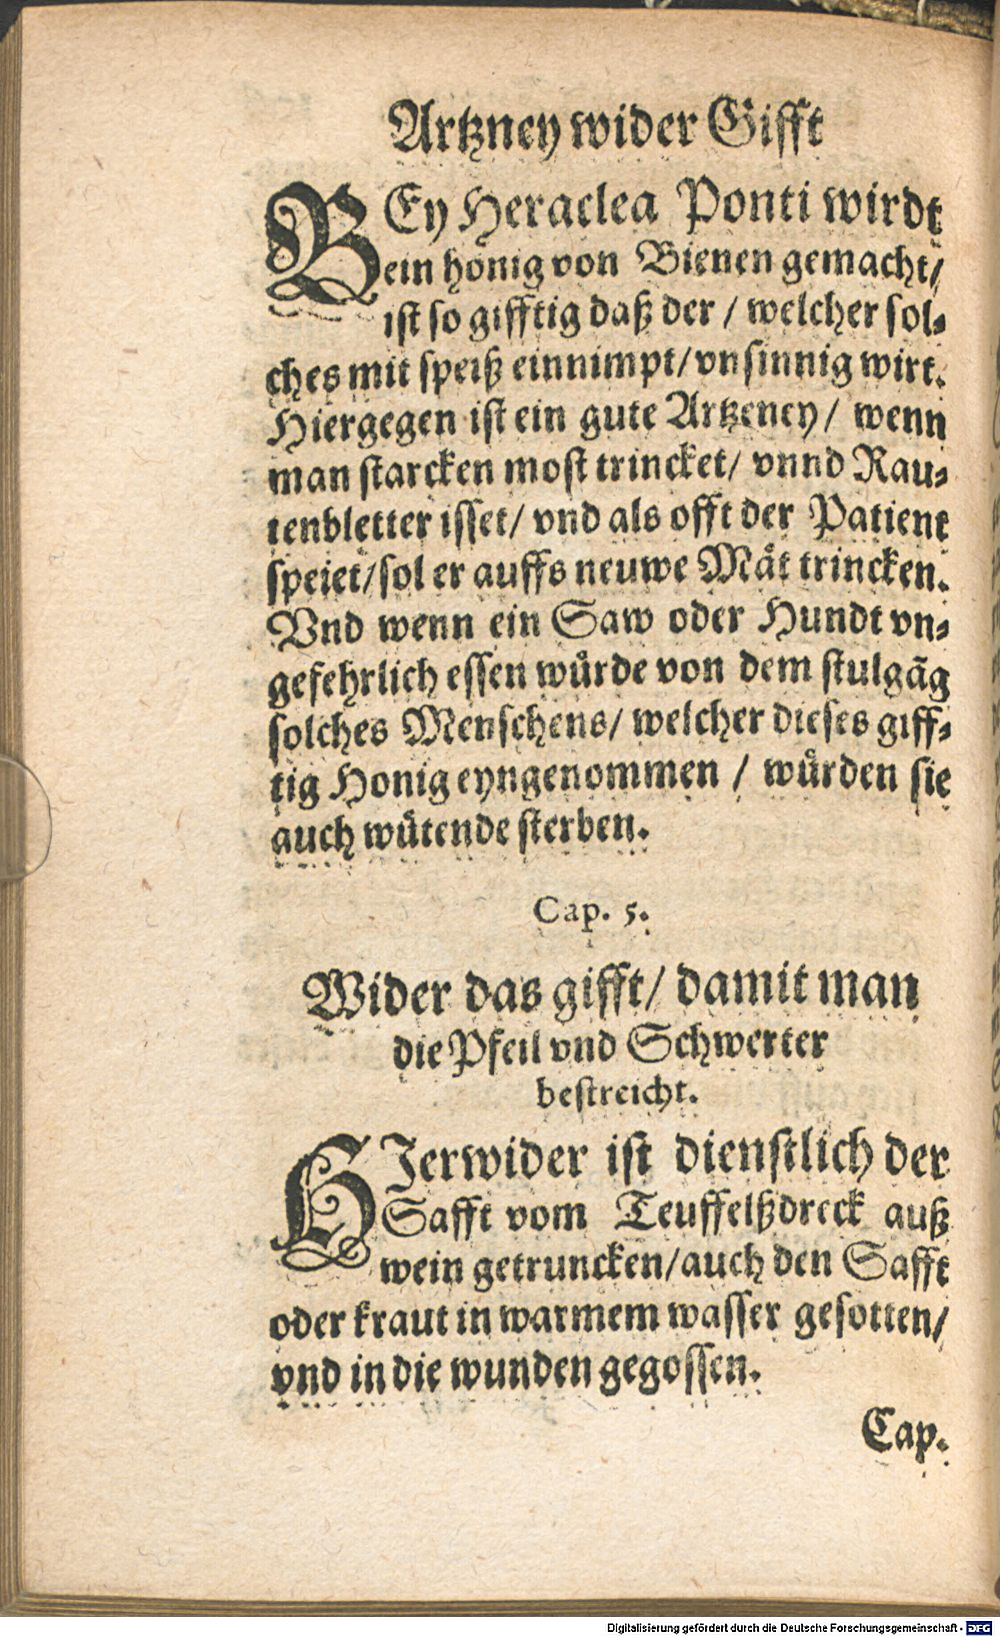 Artzney wider Gifft
BEy Heraclea Ponti wirdt
ein hönig von Bienen gemacht/
ist so gifftig daß der / welcher sol-
ches mit speiß einnimpt/ vnsinnig wirt.
Hiergegen ist ein gute Artzeney/ wenn
man starcken most trincket/ vnnd Rau-
tenbletter isset/ vnd als offt der Patient
speiet/ sol er auffs neuwe Mät trincken.
Vnd wenn ein Saw oder Hundt vn-
gefehrlich essen würde von dem stulgãg
solches Menschens/ welcher dieses giff-
tig Honig eyngenommen / würden sie
auch wütende sterben.
Cap. 5.
Wider das gifft/ damit man
die Pfeil vnd Schwerter
bestreicht.
HIerwider ist dienstlich der
Safft vom Teuffelßdreck auß
wein getruncken/ auch den Safft
oder kraut in warmem wasser gesotten/
vnd in die wunden gegossen.
Cap.
Digitalisierung gefördert durch die Deutsche Forschungsgemeinschaft - DFG